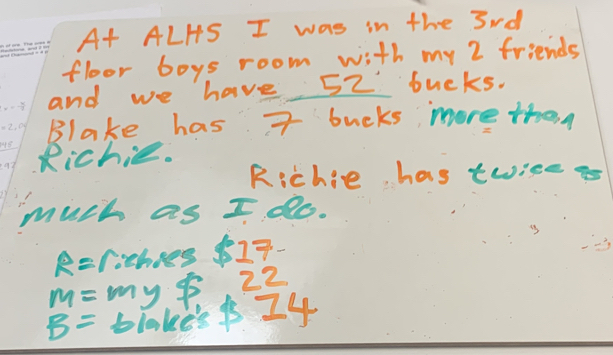 At ALHS I was in the 3rd
floor boys room with my 2 friends
and we have 52 bucks.
Blake has 7 bucks more then
Richie.
Richie has twice as
much as I do.
R=richies $17
m=my $ 22
B= blake's $ 14